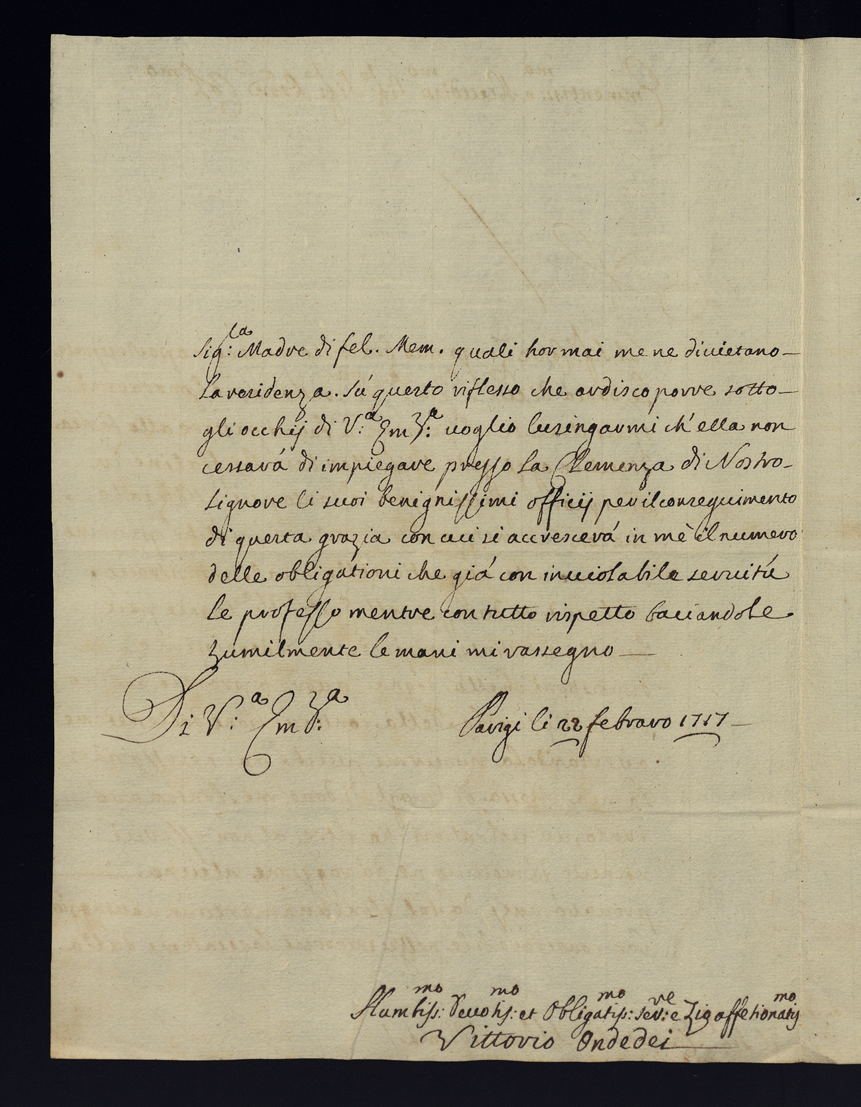 Sig:ra Madre di fel. Mem. quali hor mai me ne diuietano
la residenza. Sú questo riflesso che ardisco porre sotto
gli occhij di V:a Emza uoglio lusingarmi ch'ella non
cessará di impiegare presso la Clemenza di Nostro
Signore li suoi benignissimi officij per il conseguimento
di questa grazia con cui si accrescerá in mè il numero
delle obligationi che giá con inuiolabile seruitú
le professo mentre con tutto rispetto baciandole
humilmente le mani mi rassegno
Di V:a Em:za Parigi li 22 febraro 1717
Humiliss:mo Deuotis:mo et Obligatiss:mo Ser:re e Zio affétionatis:mo
Vittorio Ondedei